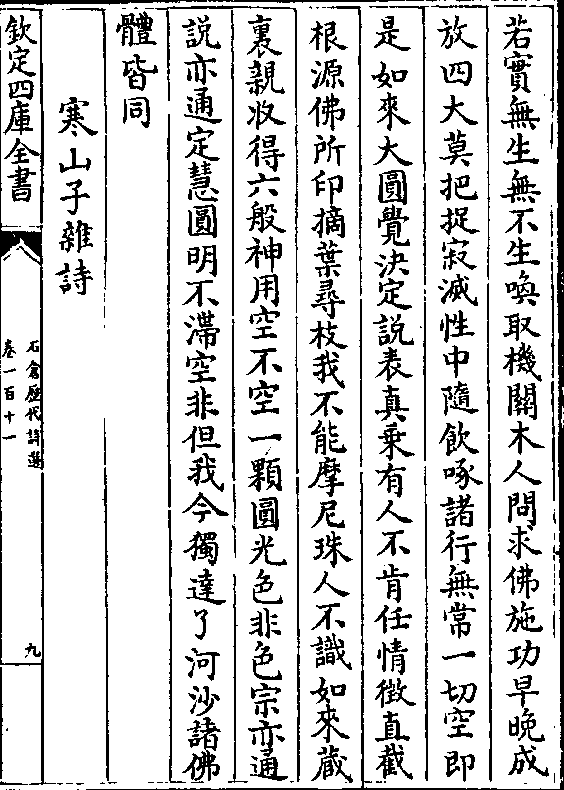 若實無生無不生喚取機關木人問求佛施功早晚成
放四大莫把捉寂滅性中隨飲啄諸行無常一切空即
是如來大圓覺決定說表真乗有人不肯任情徴直截
根源佛所印摘葉尋枝我不能摩尼珠人不識如來蔵
裏親收得六般神用空不空一顆圓光色非色宗亦通
説亦通定慧圓明不滯空非但我今獨達了河沙諸佛
體皆同
寒山子雜詩
欽定四庫全書
石倉歴代詩選
卷一百十一
九